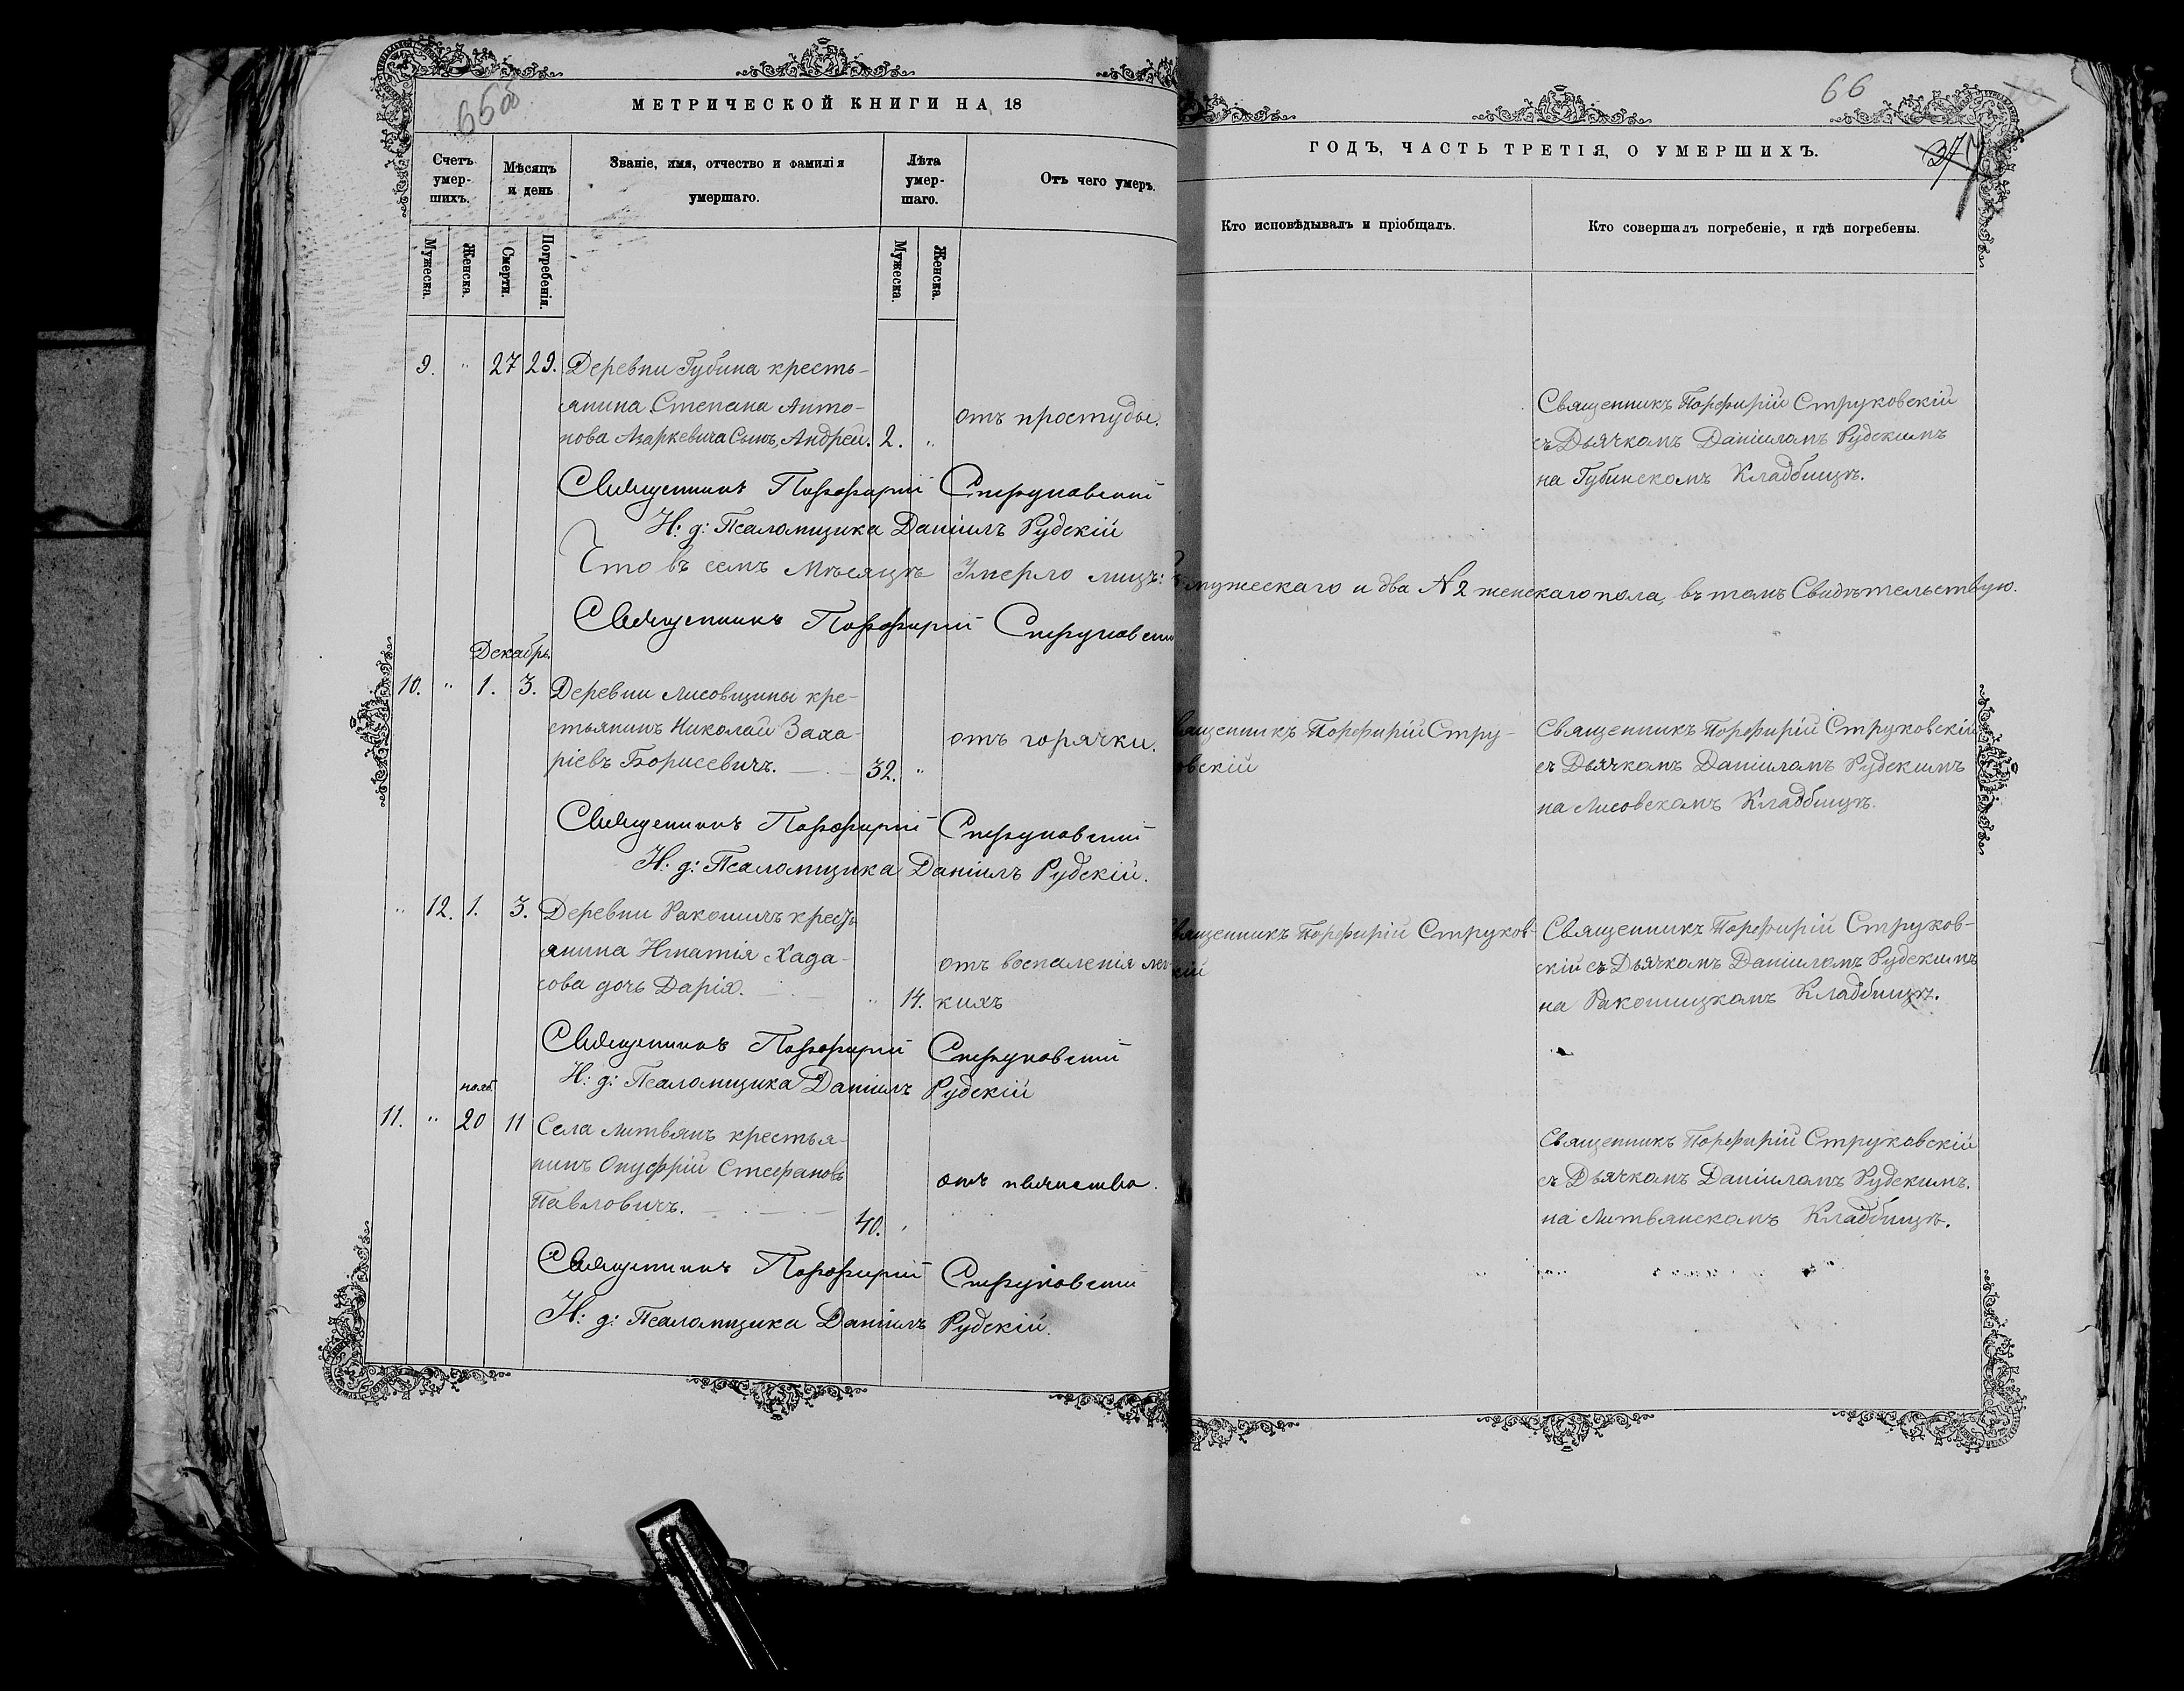 65об
МЕТРИЧЕСКОЙ КНИГИ НА 18
Счетъ умер-шихъ.
Мѣсяцъ и день
Званіе, имя, отчество и фамилія умершаго.
Лѣта умер-шаго.
Отъ чего умеръ.
Мужеска.
Женска.
Смерти.
Погребенія.
Мужеска.
Женска.
9. " 27 29. Деревни Губина кресть-
янина Степана Анто-
нова Азаркевича Сынъ, Андрей. 2. "
отъ простуды.
Священникъ Порфирій Струковскій
И: д: Псаломщика Даніилъ Рудскій
Что въ семъ мѣсяцѣ Умерло лицъ:
Священникъ Порфирій Струковскі
Декабрь
10. " 1. 3. Деревни Лисовщины кре-
стьянинъ Николай Заха-
ріевъ Борисевичъ. 32. "
отъ горячки.
Священникъ Порфирій Струковскій
И: д: Псаломщика Даніилъ Рудскій.
" 12. 1. 3. Деревни Ракошичъ кресть
янина Игнатія Хада-
сова дочь Дарія. " 14.
отъ воспаленія лег-
кихъ
Священникъ Порфирій Струковскій
И: д: Псаломщика Даніилъ Рудскій
нояб.
11. " 20 11 Села Литвянъ крестья-
нинъ Онуфрій Стефановъ
Павловичъ. 40.
отъ пьянства.
Священникъ Порфирій Струковскій
И: д: Псаломщика Даніилъ Рудскій.
66
ГОДЪ, ЧАСТЬ ТРЕТІЯ, О УМЕРШИХЪ.
Кто исповѣдывалъ и пріобщалъ.
Кто совершалъ погребеніе, и гдѣ погребены.
Священникъ Порфирій Струковскій
съ Дьячкомъ Даніиломъ Рудскимъ
на Губинскомъ Кладбищѣ.
мужескаго и два № 2 женскаго пола, въ томъ Свидѣтельствую.
вященникъ Порфирій Стру-
овскій
Священникъ Порфирій Струковскій
съ Дьячкомъ Даніиломъ Рудскимъ
на Лисовскомъ Кладбищѣ.
вященникъ Порфирій Струков-
кій
Священникъ Порфирій Струков-
скій съ Дьячкомъ Даніиломъ Рудскимъ
на Ракошицкомъ Кладбищѣ.
Священникъ Порфирій Струковскій
съ Дьячкомъ Даніиломъ Рудскимъ.
на Литвянскомъ Кладбищѣ.